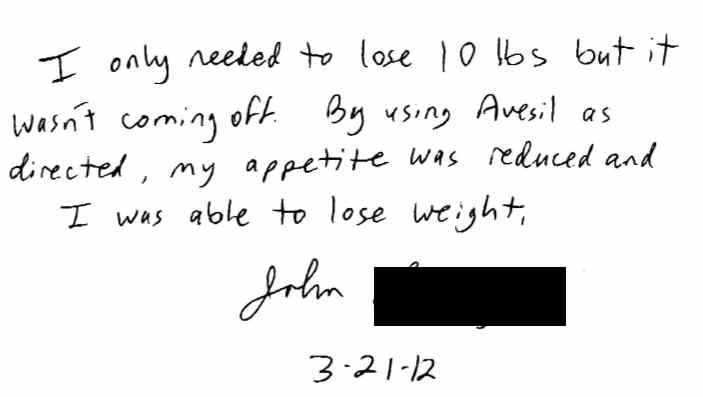 I only needed to lose 10 lbs but it
wasn't coming off. By using Avesil as
directed, my appetite was reduced and
I was able to lose weight.
John
3-21-12